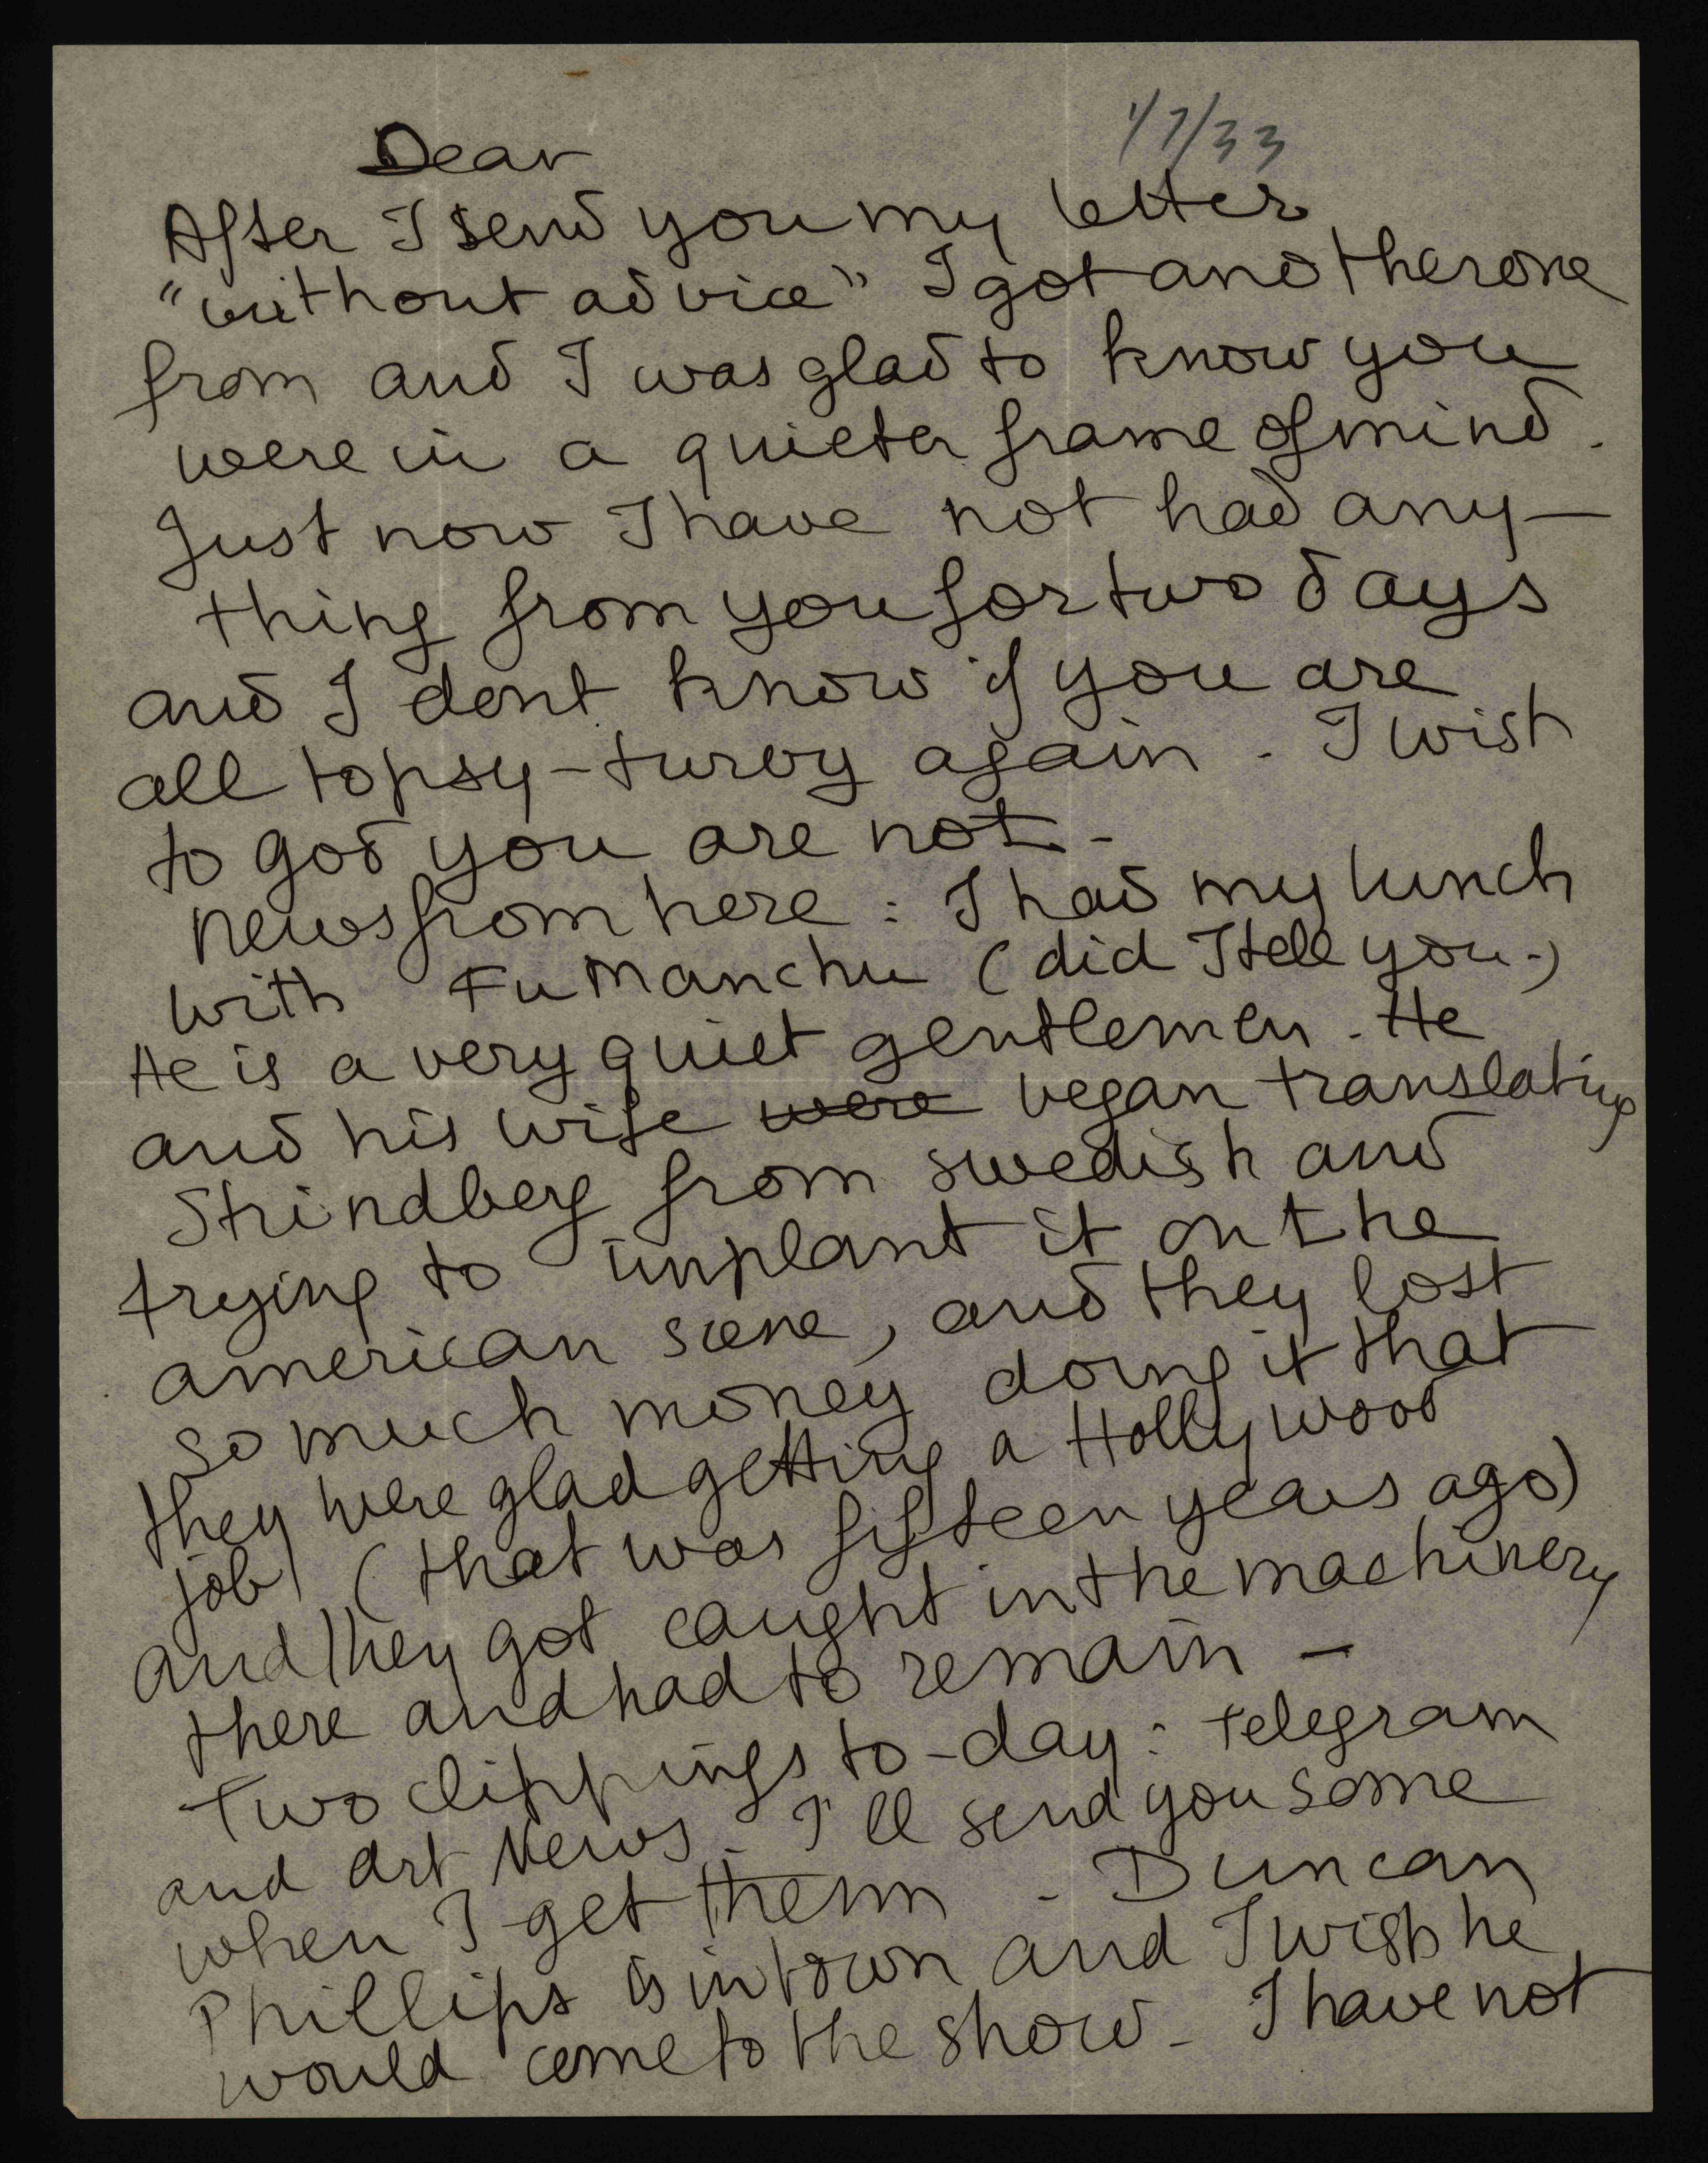 1/7/33
Dear
After I send you my letter
"without advice" I got anotherone
from and I was glad to know you
were in a quieter frame of mind.
Just now I have not had any-
thing from you for two days
and I dont know if you are
all topsy-turvy again - I wish
to god you are not -
News from here : I had my lunch
with Fu Manchu (did I tell you -)
He is a very quiet gentlemen. He
and his wife were vegan translating
Strindberg from swedish and
trying to implant it on the
american scene, and they lost
so much money doing it that
they were glad getting a Hollywood
job (that was fifteen years ago)
and they got caught in the machinery
there and had to remain -
Two clippings to-day: Telegram
and Art News. I'll send you some
when I get them - Duncan
Phillips is in town and I wish he
would come to the show - I have not